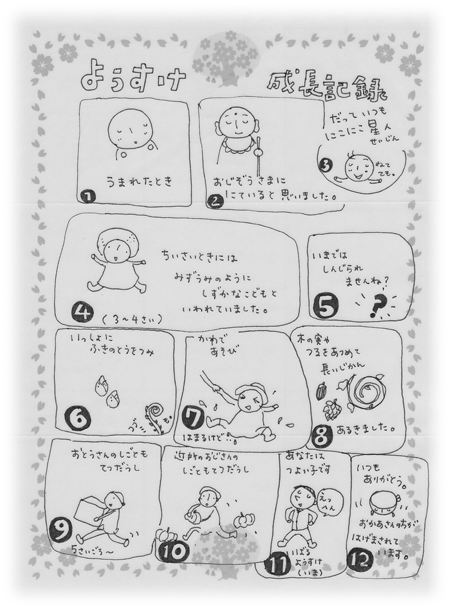 ようすけ 成長記録
うまれたとき
1
おじぞうさまに
にていると思いました。
2
だっていつも
にこにこ星人
せいじん
ねて
ても。
3
ちいさいときには
みずうみのように
しずかなこどもと
いわれていました。
4
(3〜4さい)
いまでは
しんじられ
ませんね?
5
?
いっしょに
ふきのとうをつみ
6
も。
かわで
あそび
7
はまるけど!!
木の実や
つるをあつめて
長いじかん
8
あるきました。
おとうさんのしごとも
てつだうし
9
5さいごろ〜
近所のおじさんの
しごともてつだうし
10
あなたは
つよい子です
えっ
へん
11
いばる
ようすけ
(いま)
いつも
ありがとう。
おかあさんのちが
はげまされて
12
います。